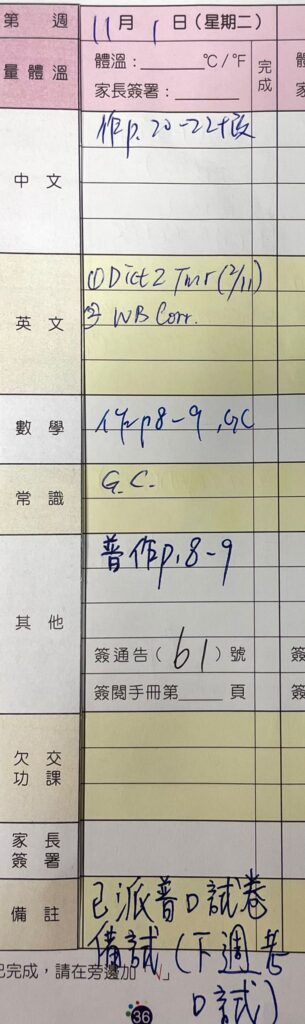 第 週 11月1日(星期二)
量體溫 體溫:______°C/°F 完成
家長簽署:______
中文 作p.20-22+改
英文 ①Dict 2 Tmr (2/11)
② WB Corr.
數學 作p8-9, GC
常識 G.C.
其他 普作p.8-9
簽通告(61)號
簽閱手冊第____頁
欠交功課
家長簽署
備註 已派普口試卷
備試(下週考
口試)
已完成,請在旁邊加「✓」
36